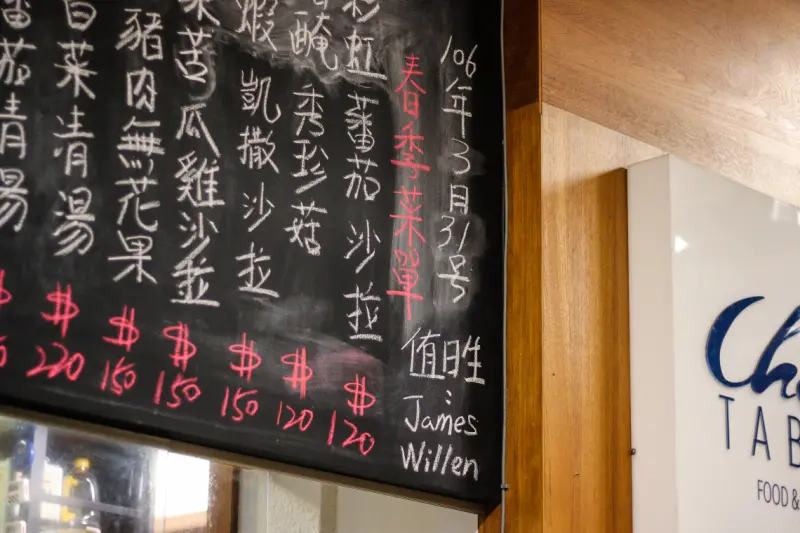 106年3月31号
春季菜單
值日生:
James
Willen
彩虹蕃茄沙拉
$120
醃秀珍菇
$120
蝦凱撒沙拉
$150
苦瓜雞沙拉
$150
豬肉無花果
$150
白菜清湯
$220
番茄清湯
$
Ch
TAB
FOOD &